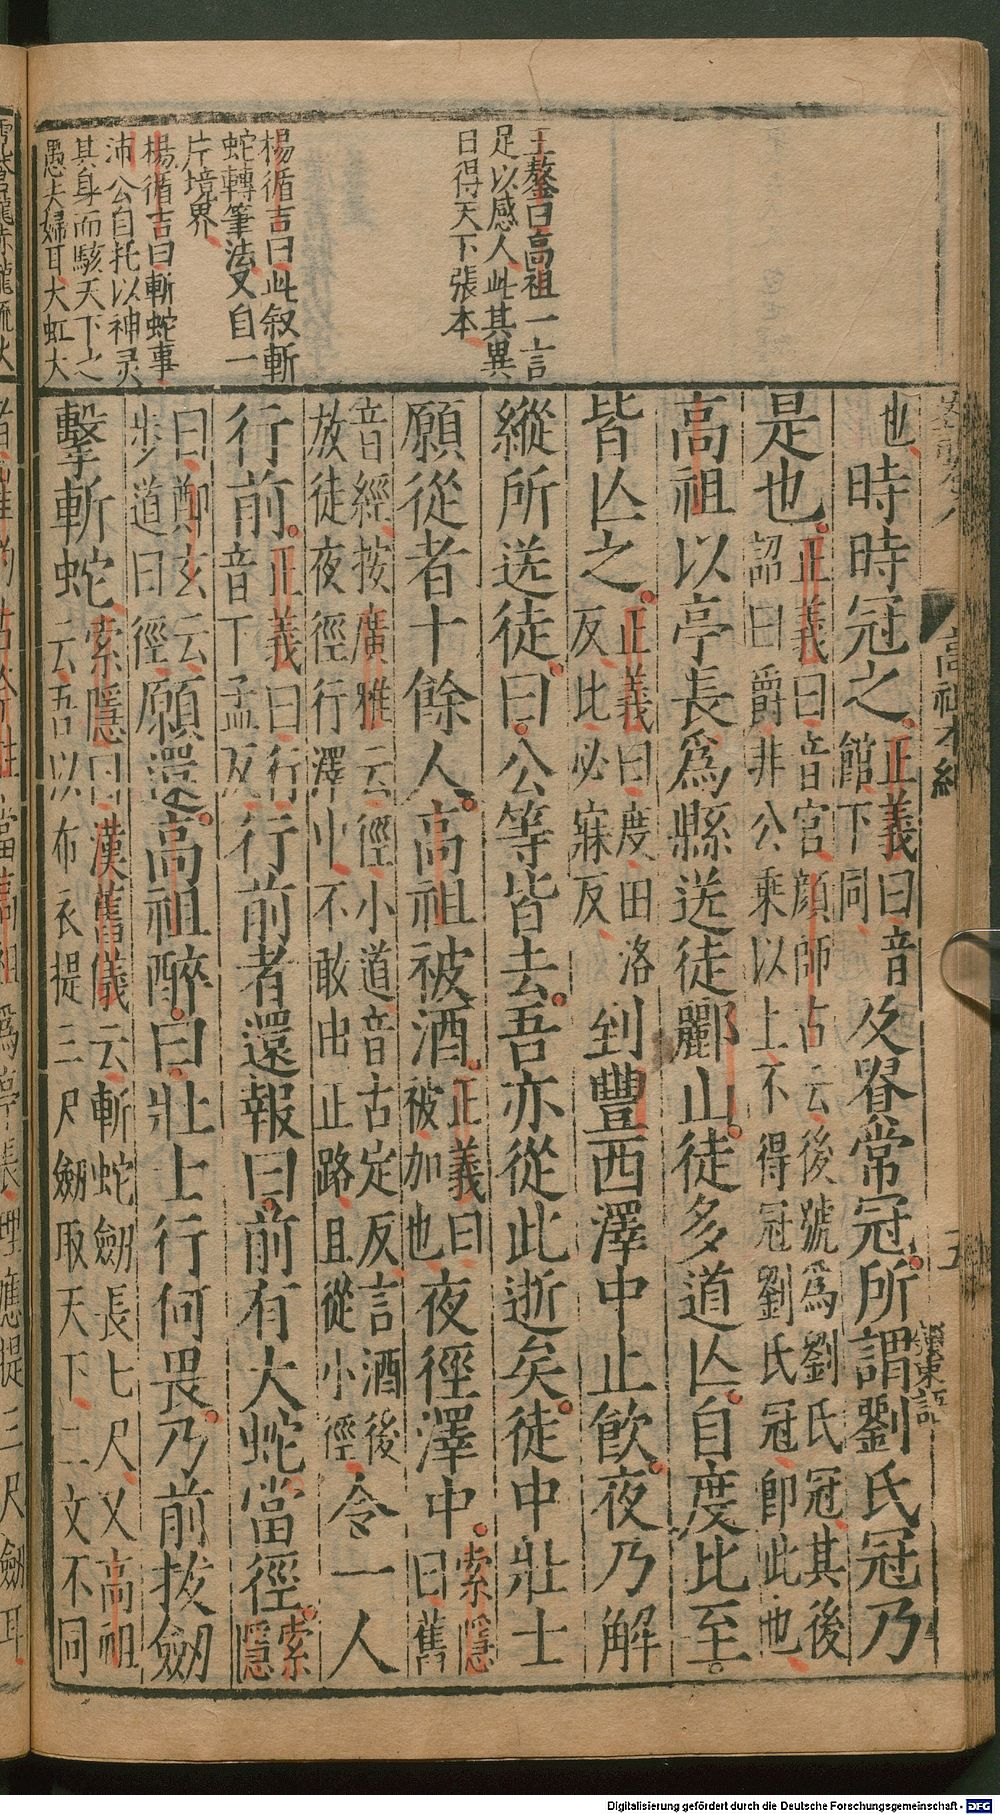 王鏊曰高祖一言
足以感人此其異
日得天下張本
楊循吉曰此叙斬
蛇轉筆法又自一
片境界
楊循吉曰斬蛇事
沛公自托以神灵
其身而駭天下之
愚夫婦耳大虹大
高祖本紀
五
也時時冠之正義曰音館下同及貴常冠所謂劉氏冠乃
是也正義曰音官顏師古云後號爲劉氏冠其後詔曰爵非公乘以上不得冠劉氏冠即此也
高祖以亭長爲縣送徒酈山徒多道亡自度比至
皆亡之正義曰度田洛反比必寐反到豐西澤中止飮夜乃解
縱所送徒曰公等皆去吾亦從此逝矣徒中壯士
願從者十餘人高祖被酒正義曰被加也夜徑澤中索隱曰舊
音經按廣雅云徑小道音古定反言酒後放徒夜徑行澤中不敢出正路且從小徑令一人
行前正義曰行音下孟反行前者還報曰前有大蛇當徑索隱
曰鄭玄云步道曰徑願還高祖醉曰壯士行何畏乃前拔劒
擊斬蛇索隱曰漢舊儀云斬蛇劒長七尺又高祖云吾以布衣提三尺劒取天下二文不同
Digitalisierung gefördert durch die Deutsche Forschungsgemeinschaft - DFG